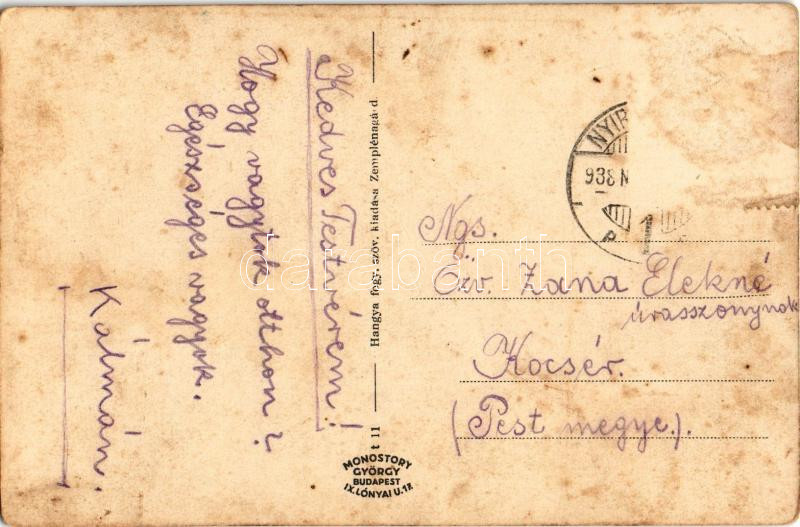 Kedves Testvérem!
Hogy vagytok otthon?
Egészséges vagyok.
Kálmán.
Hangya fogy. szöv. kiadása Zemplénagárd
t 11
MONOSTORY
GYÖRGY
BUDAPEST
IX. LÓNYAI U. 17.
NYIR
938 N
1
P
Ngs.
Özv. Zana Elekné
úrasszonynak
Kocsér.
(Pest megye.).
darabanth